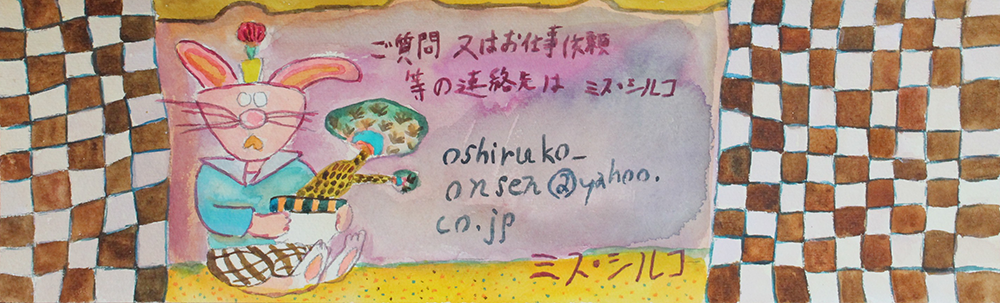 ご質問 又はお仕事依頼
等の連絡先は ミス・シルコ
oshiruko_
onsen@yahoo.
co.jp
ミス・シルコ